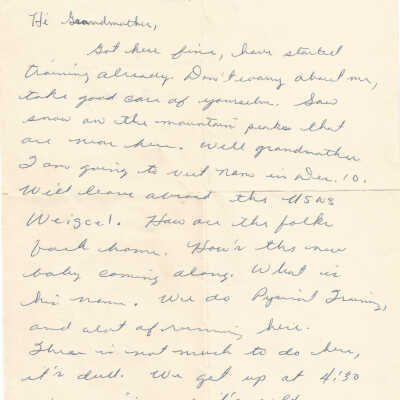 Hi Grandmother,
Got here fine, have started
training already. Don't worry about me,
take good care of yourselve. Saw
snow on the mountain peaks that
are near here. Well grandmother
I am going to viet nam in Dec. 10.
Will leave abroad the USNS
Weigel. How are the folks
back home. How's the new
baby coming along. What is
his name. We do Pysical Training,
and alot of running here.
There is not much to do here,
it's dull. We get up at 4:30